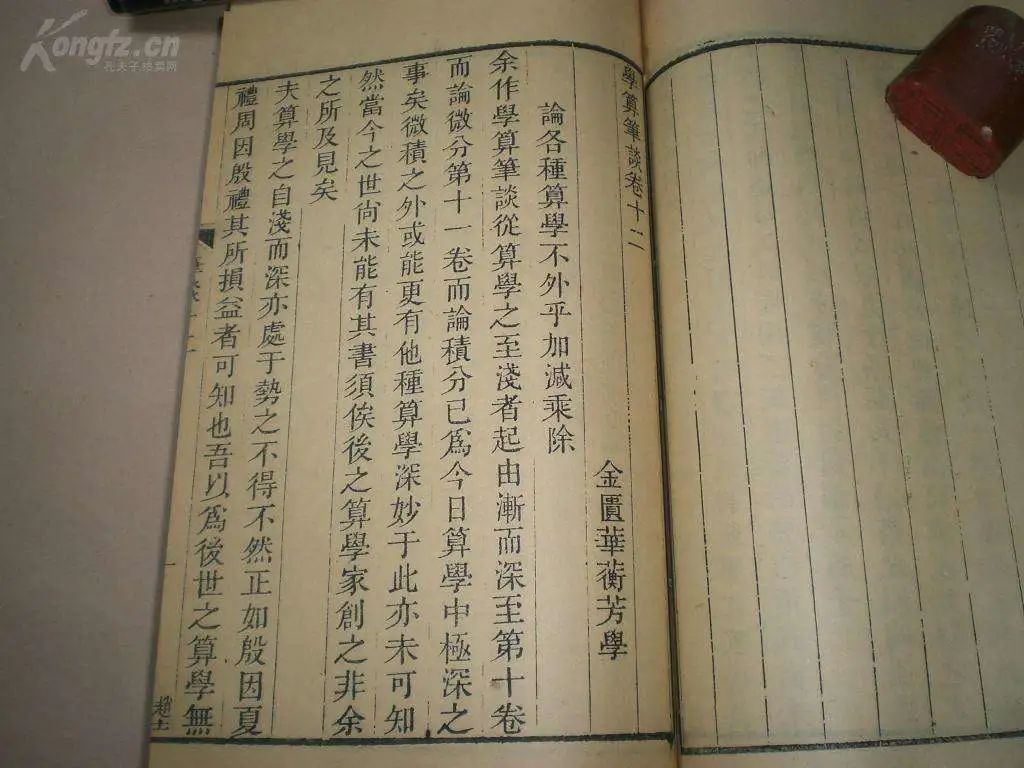 Kongfz.cn
孔夫子拍卖网
學算筆談卷十二
金匱華蘅芳學
論各種算學不外乎加減乘除
余作學算筆談從算學之至淺者起由漸而深至第十卷
而論微分第十一卷而論積分已爲今日算學中極深之
事矣微積之外或能更有他種算學深妙于此亦未可知
然當今之世尙未能有其書須俟後之算學家創之非余
之所及見矣
夫算學之自淺而深亦處于勢之不得不然正如殷因夏
禮周因殷禮其所損益者可知也吾以爲後世之算學無